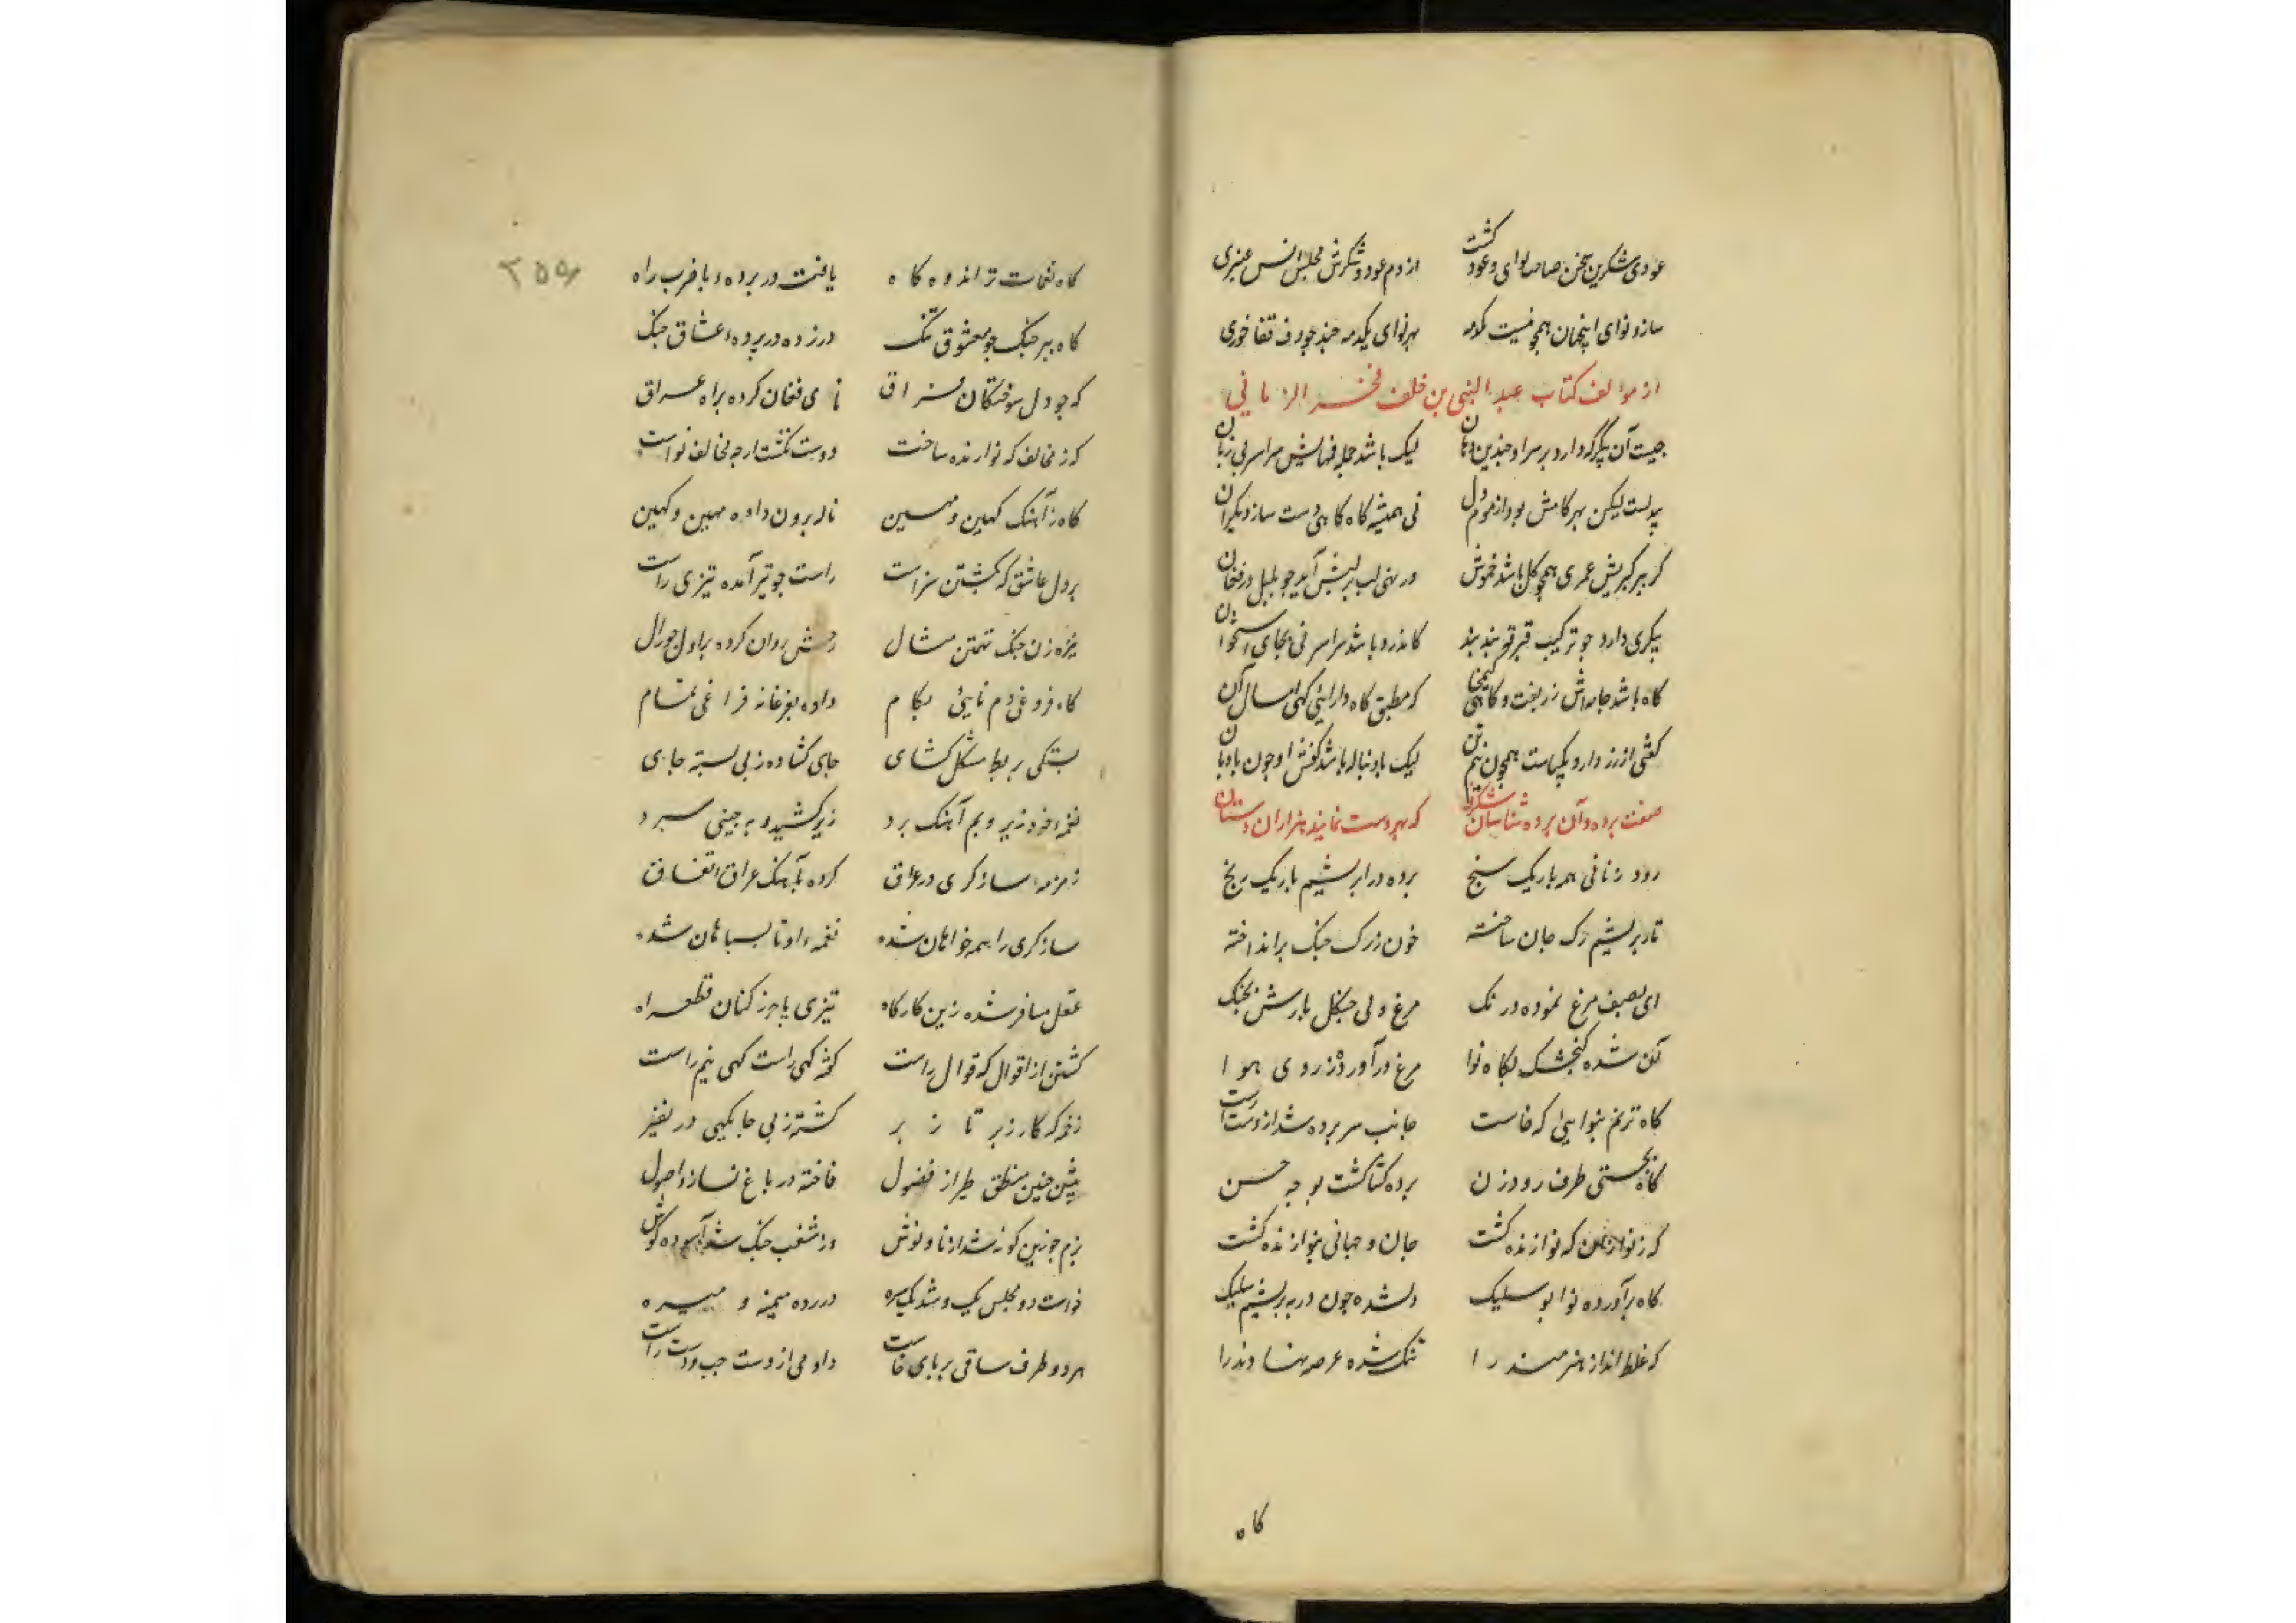 عودی شکرین سخن صاحب لوای وعود کشت از دم عود و شکرش مجلس انس عنبری
ساز و نوای اینچنان همچو نیست بهر نوای یکدمه چند چو دف قفا خوری
از موالف کتاب عبد النبی بن خلف فخر الزمانی
چیست آن پیکر که دارد بر سر او چندین دهان لیک باشد جمله فمهایش سراسر بی زبان
بیدلست لیکن بهر کامش بود از مردم دل نی همیشه کاه کاهی دست ساز دیکران
کر ببر کیریش عمری همچو کل باشد خموش ور نهی لب بر لبش آید چو بلبل در فغان
پیکری دارد جو ترکیب قبر قو بند بند کاندرو باشد سراسر نی بجای استخوان
کاه باشد جامه اش زربفت و کاهی کیمخا که مطبق کاه دارایی کهی امسال آن
کفشی از زر دارد و یکپاست همچون لیک با دنباله باشد کفش او چون بادبان
صفت پرده و آن پرده شناسان شکرف که بهر دست نمایند هزاران دستان
رود زنانی همه باریک سنج برده در ابریشم باریک رنج
تار بریشم رک جان ساخته خون ز رک چنک برانداخته
ای بصف مرغ نموده درنک مرغ ولی چنکل بازش بچنک
کن شده کنجشک بکاه نوا مرغ درآورده ز روی هوا
کاه ترنم بنوایی که خاست جانب سر پرده شد از دست راست
کاه بچستی طرف رودزن پرده کشا کشت بوجه حسن
که ز نوازش که نوازنده کشت جان و جهانی بنوا زنده کشت
کاه برآورده نوا بوسلیک دلشده چون در بریشم سلیک
که غلط انداز هنرمند را تنک شده عرصه نهاوند را
کاه
۲۵۹
کاه نغمات تر اندوه کاه یافت در پرده و با ضرب راه
کاه ببر چنک چو معشوق تنک در زده در پرده عشاق چنک
که چو دل سوختکان فراق نای فغان کرده براه عراق
که ز مخالف که نوازنده ساخت دوست نکشت ارچه مخالف نواست
کاه ز آهنک کهین و مهین ناله برون داده مهین و کهین
بر دل عاشق که بکشتن سزاست راست چو تیر آمده تیزی راست
نیزه زن چنک تهمتن مثال رخش روان کرده بر اول چو زال
کاه فروغی دم نایی بکام داده بفرغانه فراغی تمام
بستکی بربط مشکل کشای جای کشاده ز پی بسته جای
نغمه خود زیر و بم آهنک برد زیر کشیده به چینی سپرد
زمزمه سازکری در عراق کرده بآهنک عراق اتفاق
سازکری را همه خواهان شده نغمه او تا بسپاهان شده
عقل مسافر شده زین کارکاه تیزی پا جوز کنان قطع راه
کشتن از اقوال که قوال راست کوشه کهی راست کهی نیم راست
زخمه که کار زبر تا زبر کشته ز پی جا یکهی در نفیر
پیش چنین منطق طیر از فضول فاخته در باغ نسازد اصول
بزم چو زین کونه شد از نای و نوش وز شغب چنک شد آسوده کوش
خواست دو مجلس یک و شد یکسره در رده میمنه و میسره
هر دو طرف ساقی بر پای خاست داد می از دست چپ و دست راست